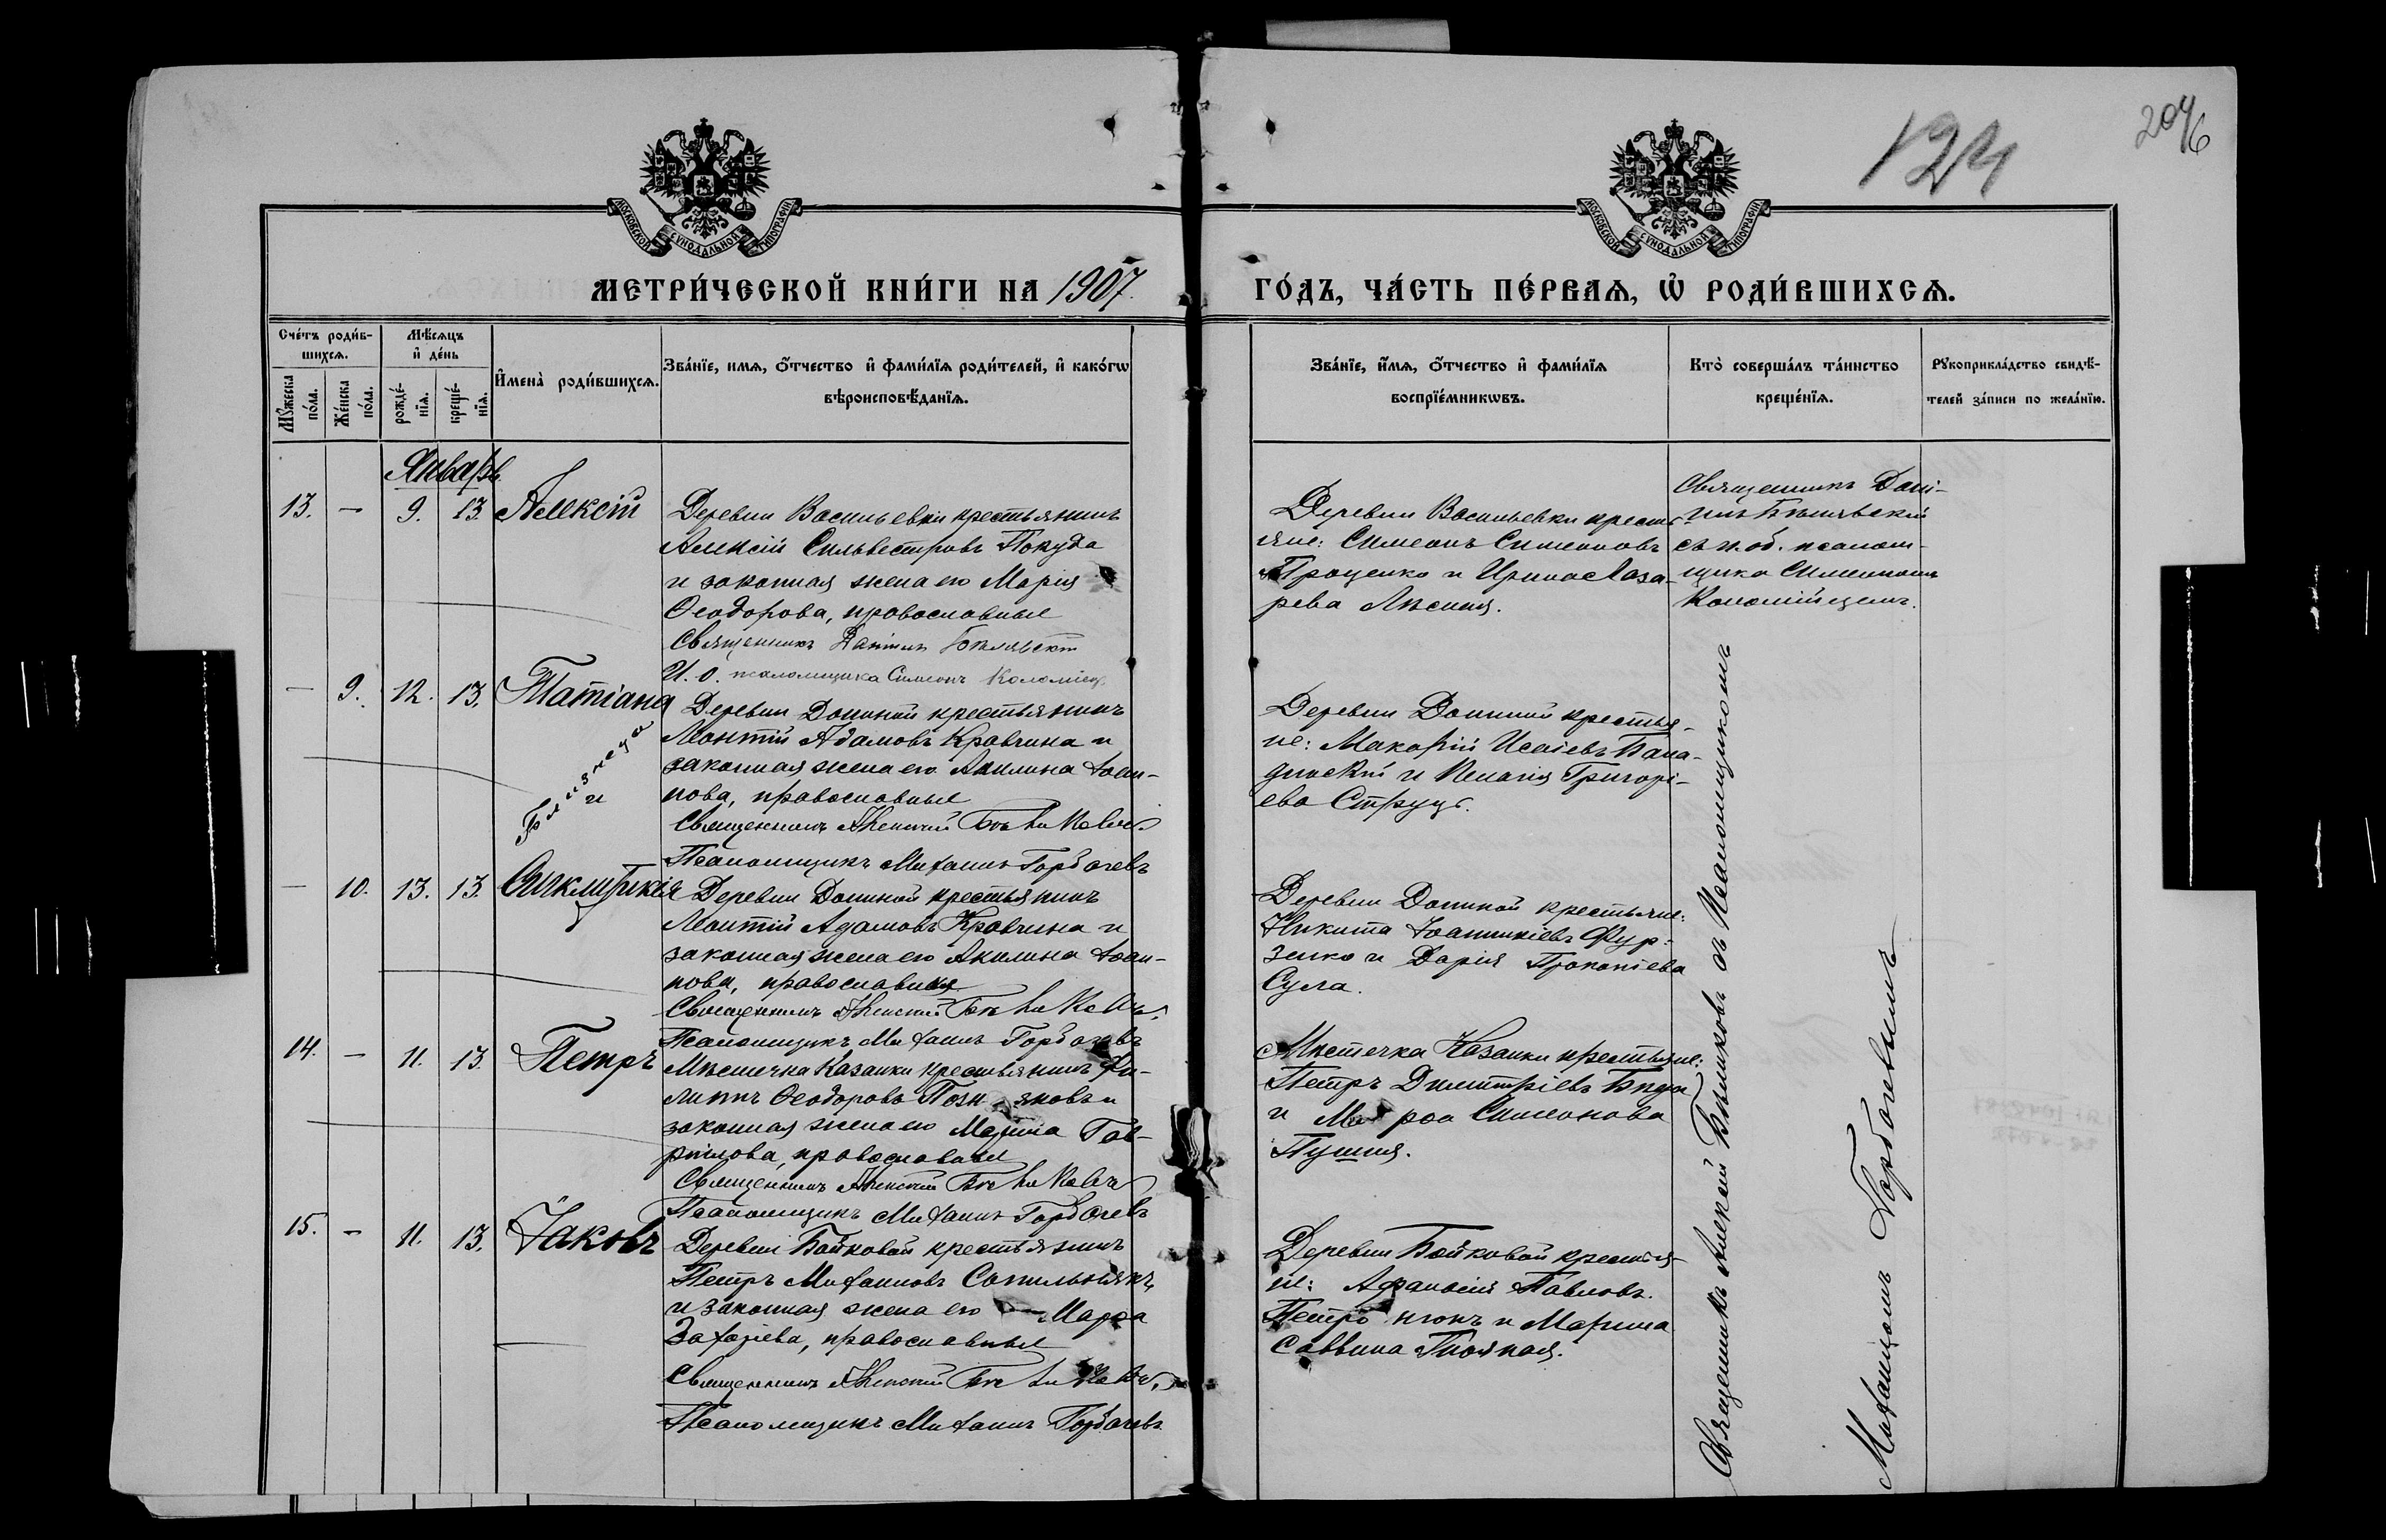 124
204/6
МОСКОВСКОЙ СѴНОДАЛЬНОЙ ТИПОГРАФІИ
МОСКОВСКОЙ СѴНОДАЛЬНОЙ ТИПОГРАФІИ
МЕТРИ́ЧЕСКОЙ КНИ́ГИ НА 1907.
ГО́ДЪ, ЧА́СТЬ ПЕ́РВАѦ, Ѡ҆ РОДИ́ВШИХСѦ.
Сче́тъ роди́вшихсѧ.
Мꙋ́жеска по́ла.
Же́нска по́ла.
Мѣ́сѧцъ и҆ де́нь
рожде́нїѧ.
креще́нїѧ.
И҆мена̀ роди́вшихсѧ.
Зва́нїе, имѧ, ѻ҆́тчество и҆ фами́лїѧ роди́телей, и҆ како́гѡ
вѣроисповѣ́данїѧ.
Зва́нїе, и҆́мѧ, ѻ҆́тчество и҆ фами́лїѧ
воспрїе́мникѡвъ.
Кто̀ соверша́лъ та́инство
креще́нїѧ.
Рꙋкоприкла́дство свидѣ́-
телей за́писи по жела́нїю.
Январь.
13. — 9. 13. Алексій
Деревни Васильевки крестьянинъ
Алексій Сильвестровъ Покуда
и законная жена его Марія
Ѳеодорова, православные
Священникъ Даніилъ Бѣлявскій
И. о. псаломщика Симеонъ Коломіецъ
Деревни Васильевки кресть-
яне: Симеонъ Симеоновъ
Проценко и Ирина Лаза-
рева Лясния.
Священникъ Дані-
илъ Бѣлявскій
съ и. об. псалом-
щика Симеономъ
Коломійцемъ.
— 9. 12. 13. Татіана
Деревни Долиной крестьянинъ
Леонтій Адамовъ Кравчина и
законная жена его Акилина Іоан-
нова, православные
Священникъ Алексій Бѣликовъ.
Псаломщикъ Михаилъ Горбачевъ
и
Близнецы
Деревни Долиной крестья-
не: Макарій Исаіевъ
и Пелагія Григорі-
ева Струцъ.
— 10. 13. 13. Синклитикія
Деревни Долиной крестьянинъ
Леонтій Адамовъ Кравчина и
законная жена его Акилина Іоан-
нова, православные
Священникъ Алексій Бѣликовъ.
Псаломщикъ Михаилъ Горбачевъ
Деревни Долиной крестьяне:
Никита Іоанникіевъ Фур-
зенко и Дарія Прокопіева
Сула.
14. — 11. 13. Петръ
Мѣстечка Казанки крестьянинъ Фи-
липпъ Ѳеодоровъ и
законная жена его Гав-
ріилова, православные
Священникъ Алексій Бѣликовъ
Псаломщикъ Михаилъ Горбачевъ
Мѣстечка Казанки крестьяне:
Петръ Димитріевъ
и Симеонова
15. — 11. 13. Іаковъ
Деревни Бойковой крестьянинъ
Петръ Михаиловъ Сопильнякъ
и законная жена его Марѳа
Захаріева, православные
Священникъ Алексій Бѣликовъ.
Псаломщикъ Михаилъ Горбачевъ
Деревни Бойковой крестья-
не: Аѳанасій Павловъ
и Марина
Саввина
Священникъ Алексій Бѣликовъ съ Псаломщикомъ
Михаиломъ Горбачевымъ